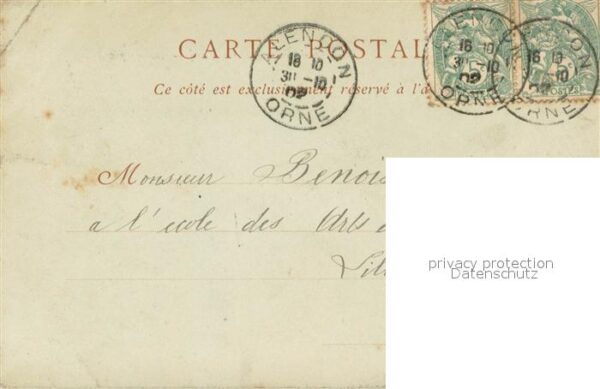 CARTE POSTAL
Ce côté est exclusivement réservé à l'a
ALENÇON
18 10
31 -10
02
ORNE
ENÇON
18 10
31 -10
02
ORNE
ÇON
18 10
-10
ORNE
POSTES
Monsieur Benois
a l'école des Arts
Lil
privacy protection
Datenschutz